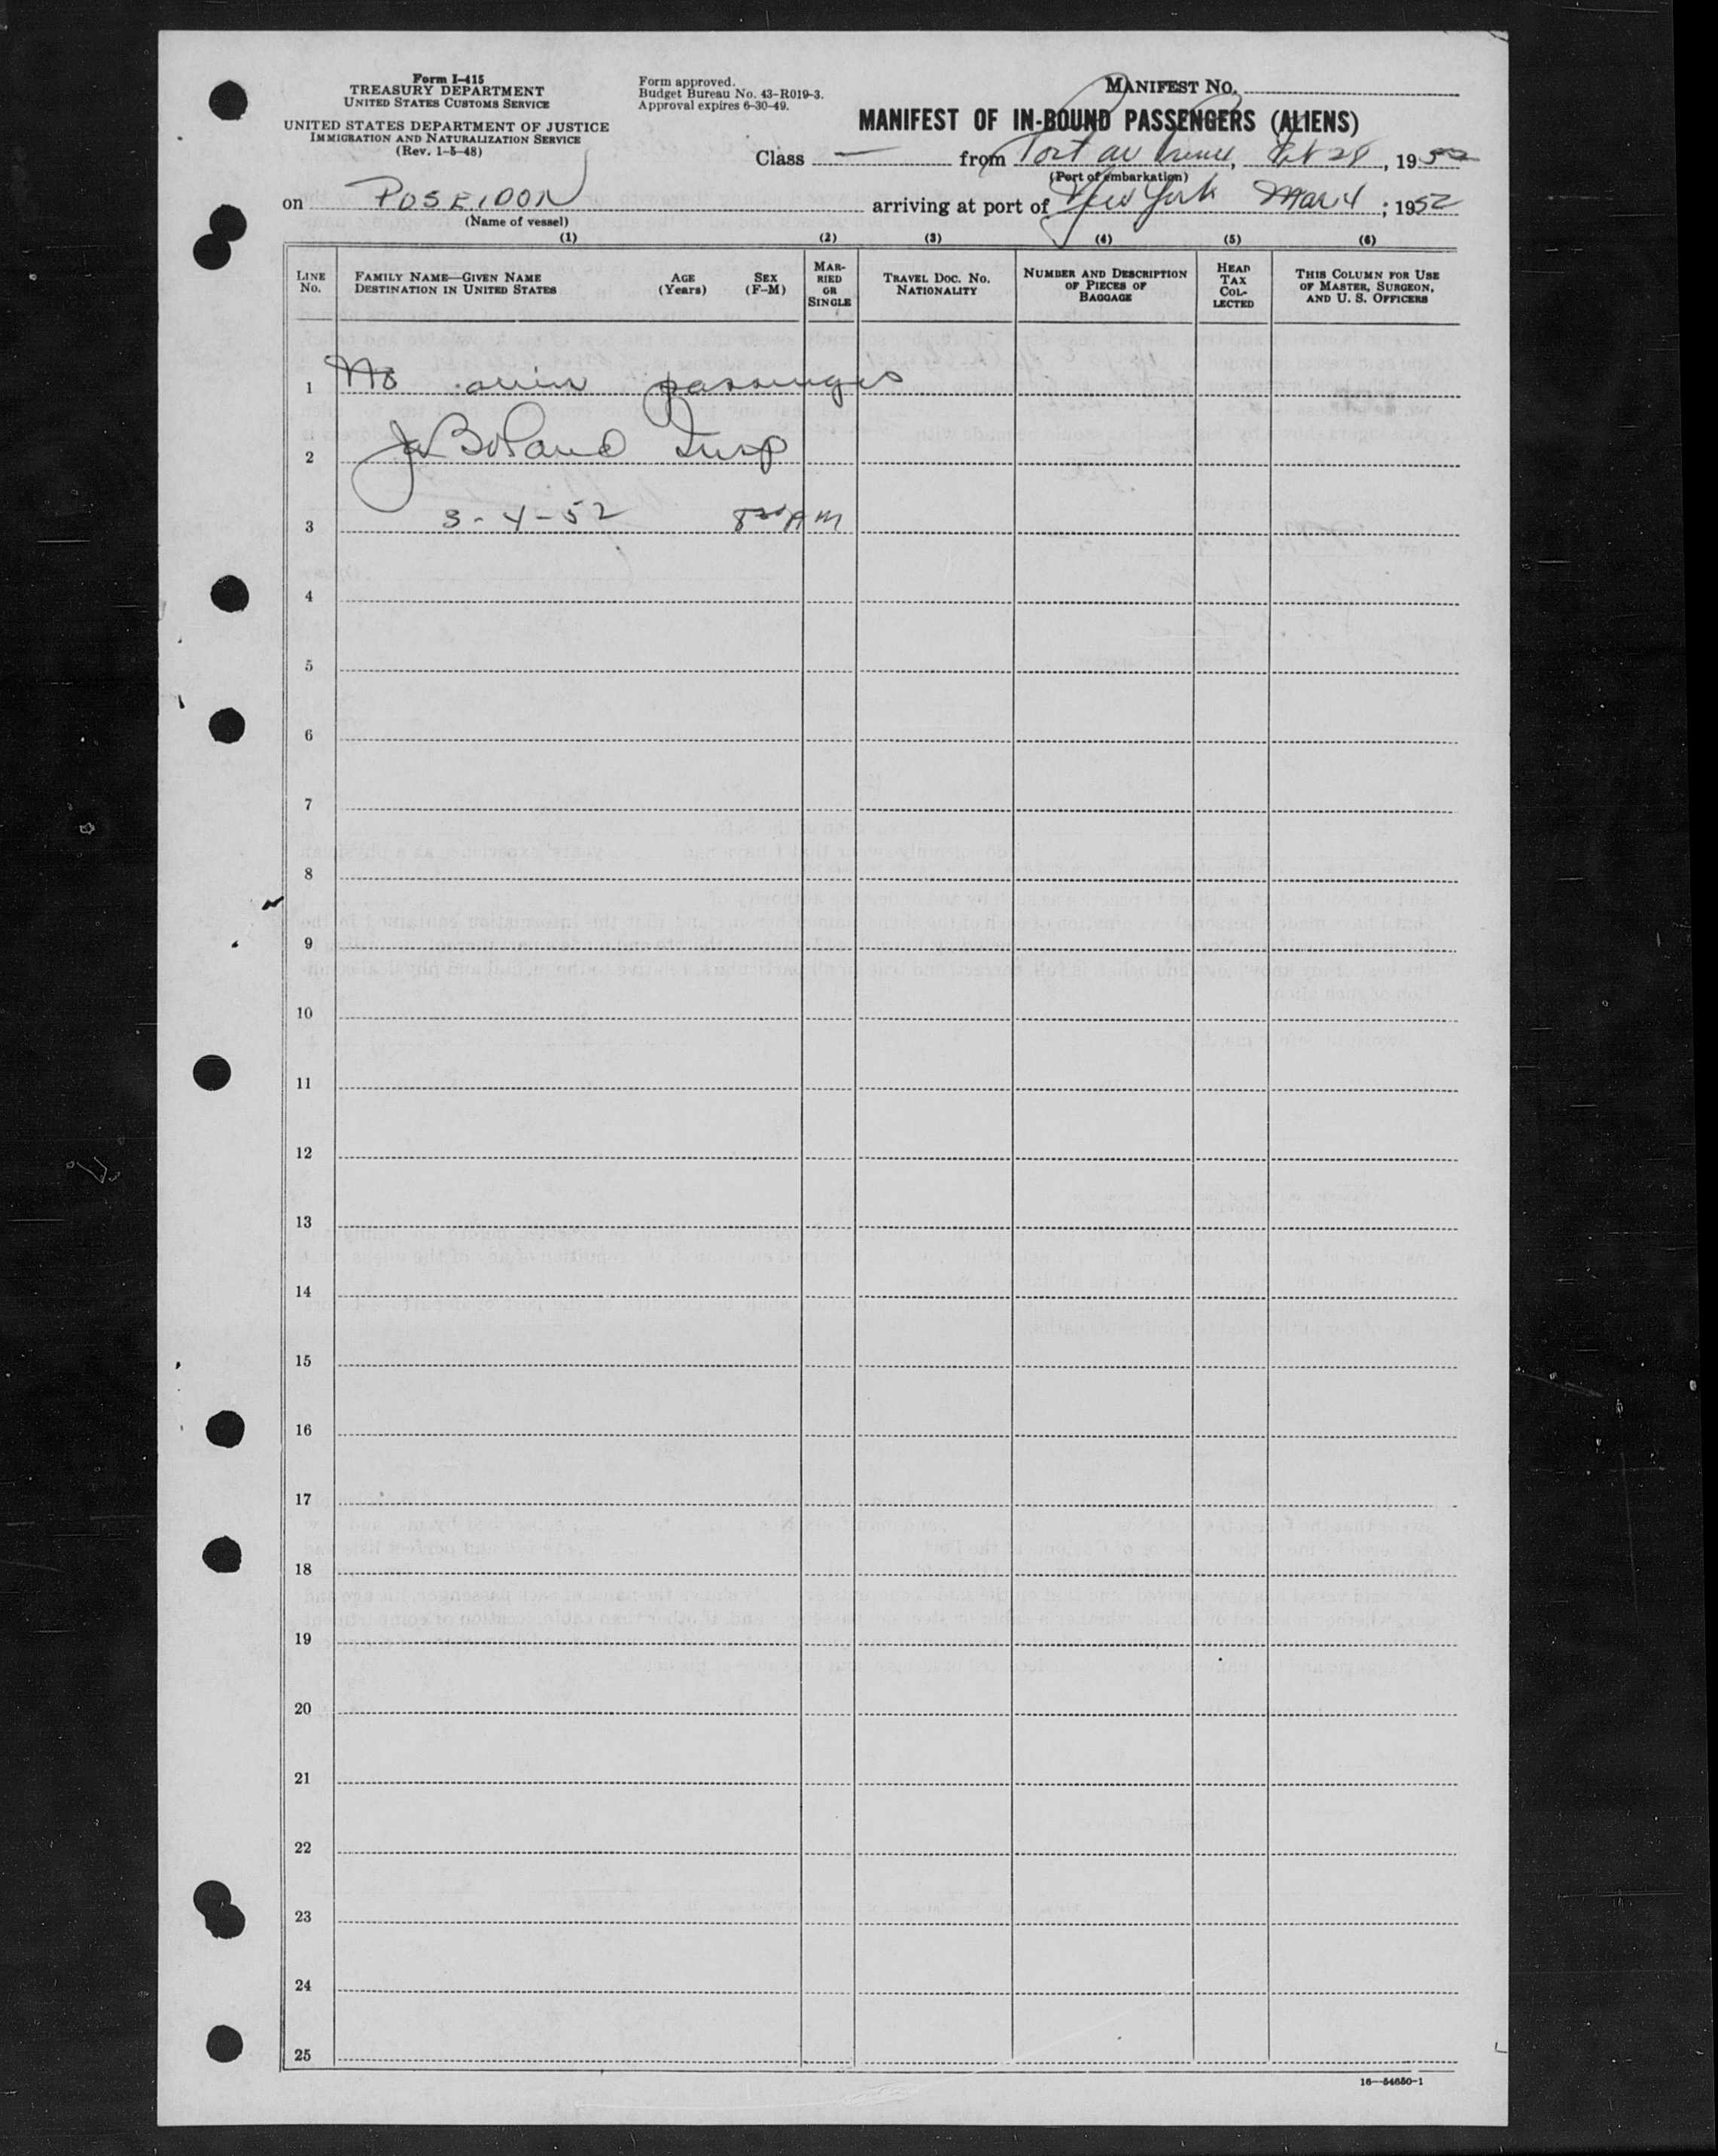 Form I-415
TREASURY DEPARTMENT
UNITED STATES CUSTOMS SERVICE
UNITED STATES DEPARTMENT OF JUSTICE
IMMIGRATION AND NATURALIZATION SERVICE
(Rev. 1-5-48)
Form approved.
Budget Bureau No. 43-R019-3.
Approval expires 6-30-49.
MANIFEST NO.
MANIFEST OF IN-BOUND PASSENGERS (ALIENS)
Class — from Port au Prince, Feb 28, 1952
(Port of embarkation)
on POSEIDON arriving at port of New York Mar 4; 1952
(Name of vessel)
(1) (2) (3) (4) (5) (6)
LINE No.
FAMILY NAME—GIVEN NAME
DESTINATION IN UNITED STATES
AGE (Years)
SEX (F-M)
MARRIED OR SINGLE
TRAVEL DOC. NO. NATIONALITY
NUMBER AND DESCRIPTION OF PIECES OF BAGGAGE
HEAD TAX COLLECTED
THIS COLUMN FOR USE OF MASTER, SURGEON, AND U. S. OFFICERS
1 No alien passengers
2 Boland Insp
3 3-4-52 8 30 AM
4
5
6
7
8
9
10
11
12
13
14
15
16
17
18
19
20
21
22
23
24
25
16—54650-1